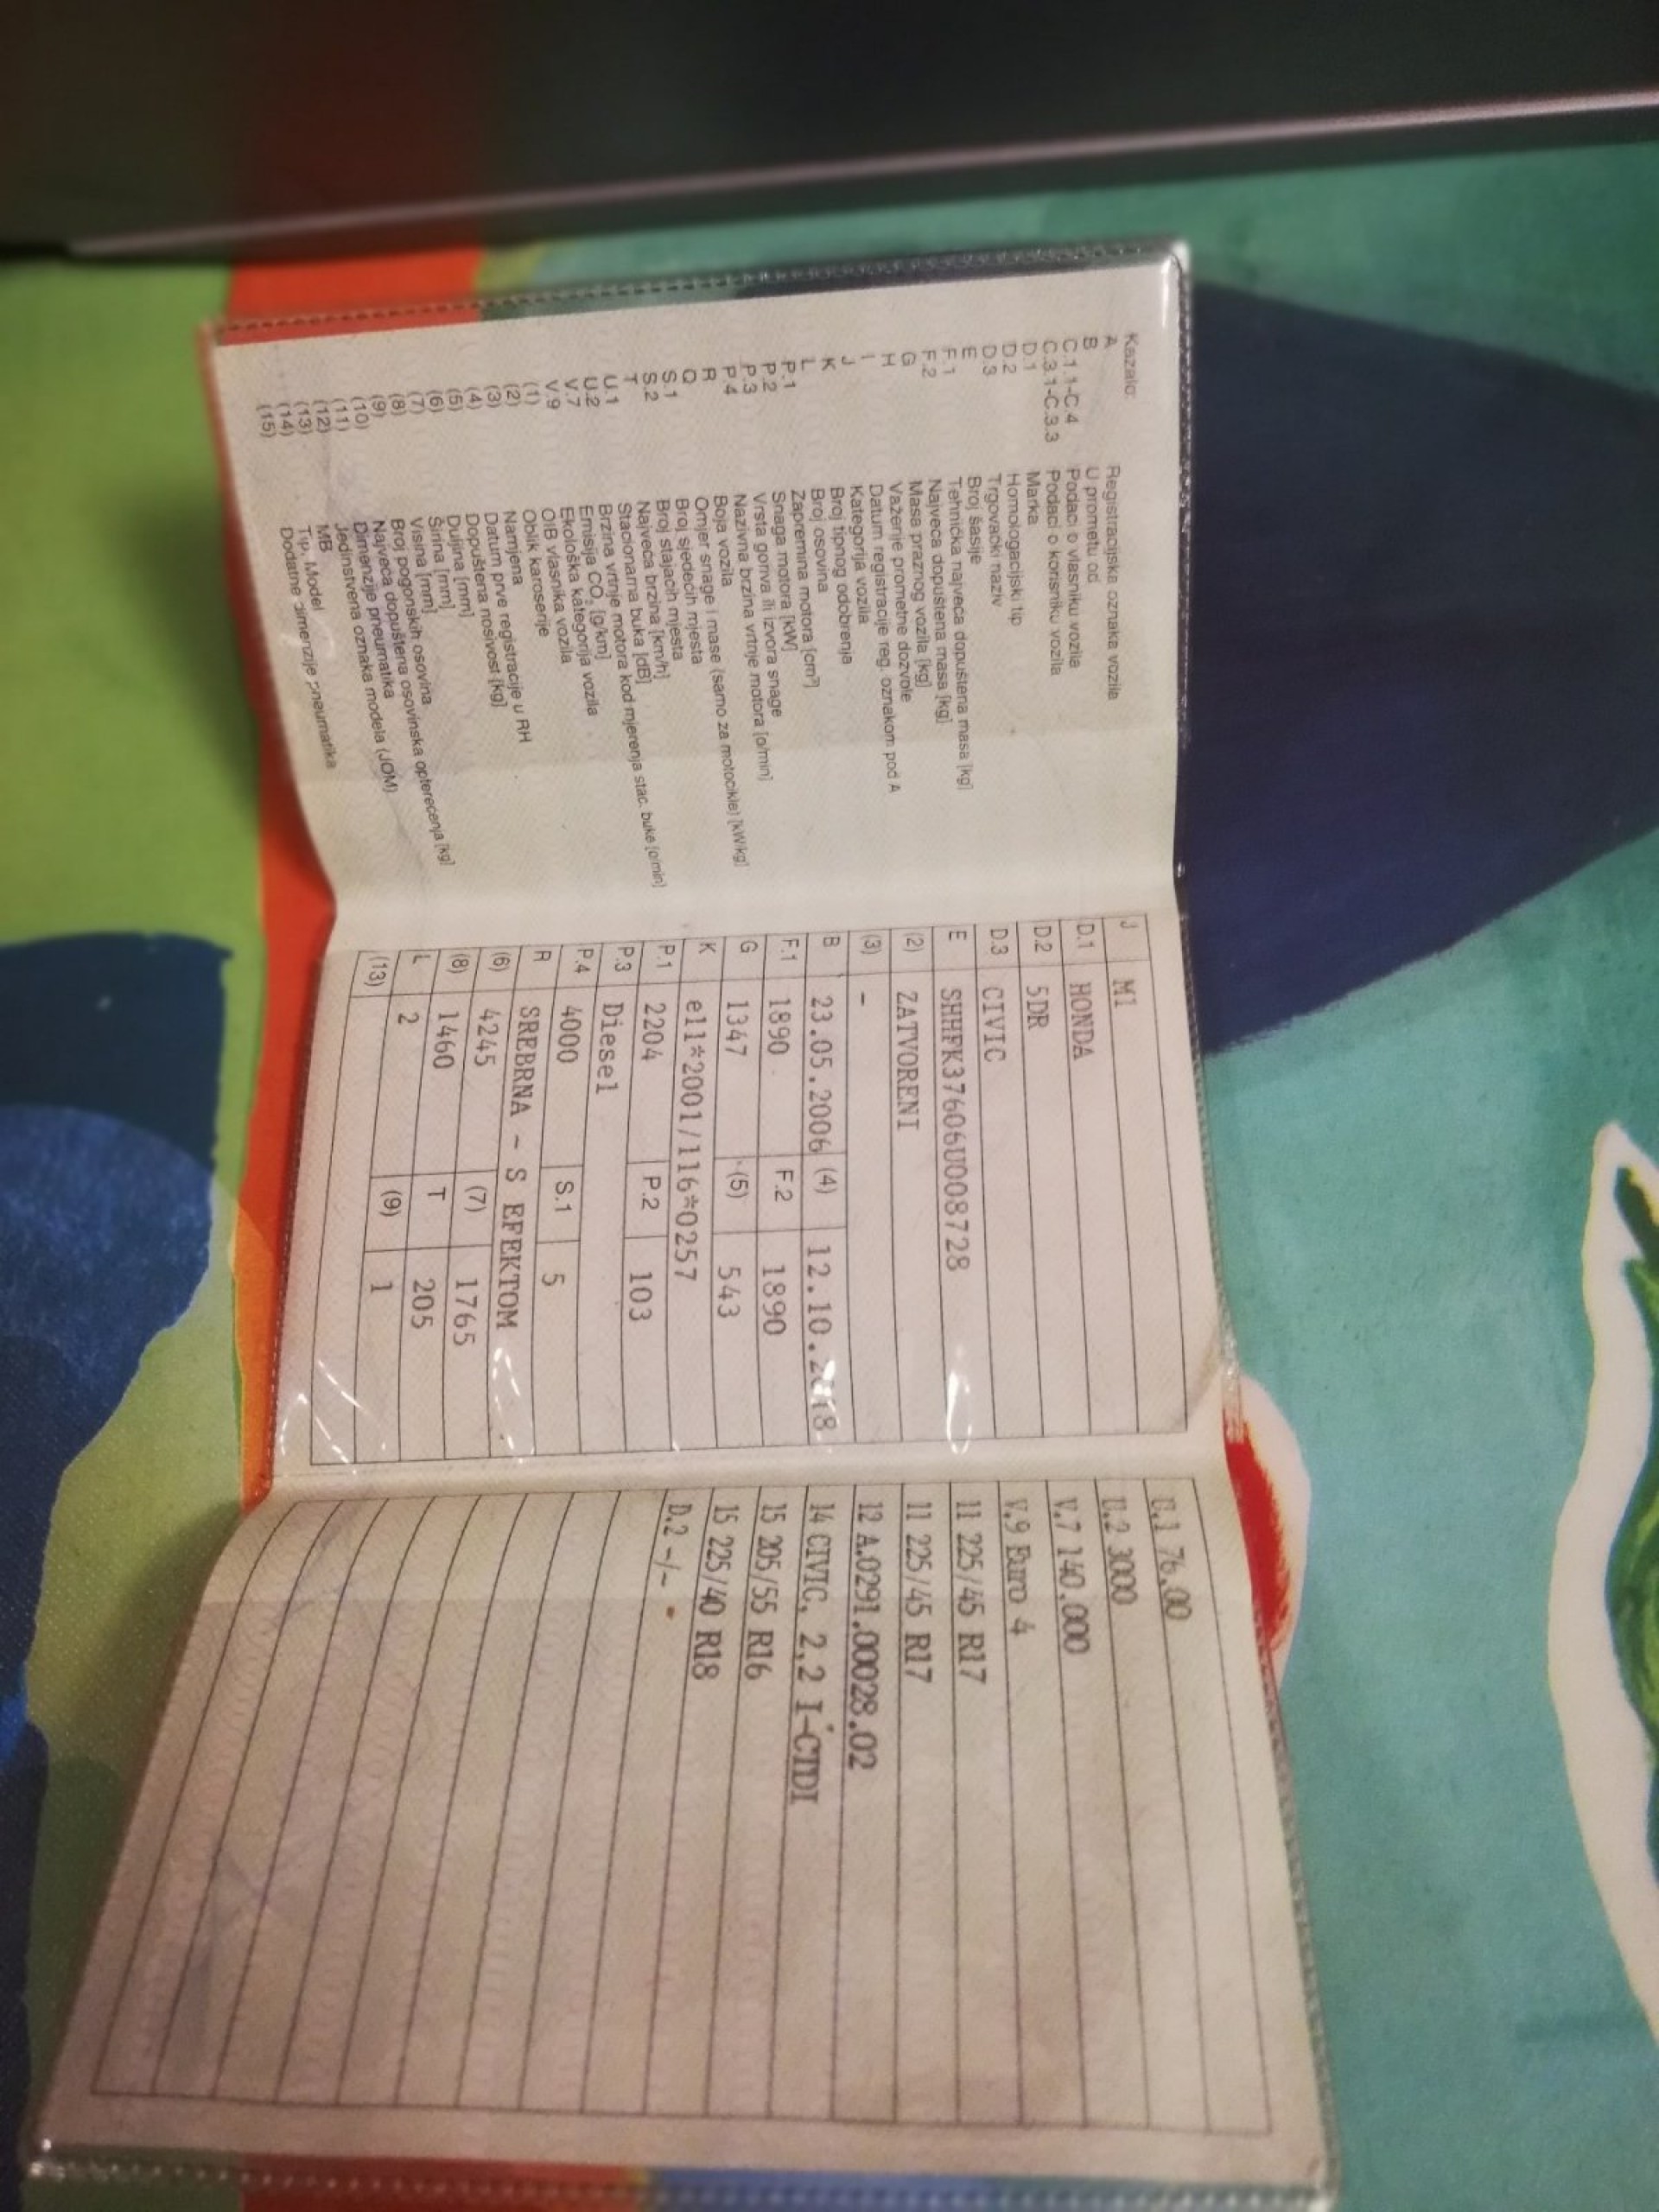 Kazalo:
A Registracijska oznaka vozila
B U prometu od
C.1.1-C.4 Podaci o vlasniku vozila
C.3.1-C.3.3 Podaci o korisniku vozila
D.1 Marka
D.2 Homologacijski tip
D.3 Trgovački naziv
E Broj šasije
F.1 Tehnička najveća dopuštena masa [kg]
F.2 Najveća dopuštena masa [kg]
G Masa praznog vozila [kg]
H Važenje prometne dozvole
I Datum registracije reg. oznakom pod A
J Kategorija vozila
K Broj tipnog odobrenja
L Broj osovina
P.1 Zapremina motora [cm³]
P.2 Snaga motora [kW]
P.3 Vrsta goriva ili izvora snage
P.4 Nazivna brzina vrtnje motora [o/min]
R Boja vozila
Q Omjer snage i mase (samo za motocikle) [kW/kg]
S.1 Broj sjedećih mjesta
S.2 Broj stajaćih mjesta
T Najveća brzina [km/h]
U.1 Stacionarna buka [dB]
U.2 Brzina vrtnje motora kod mjerenja stac. buke [o/min]
V.7 Emisija CO₂ [g/km]
V.9 Ekološka kategorija vozila
(1) OIB vlasnika vozila
(2) Oblik karoserije
(3) Namjena
(4) Datum prve registracije u RH
(5) Dopuštena nosivost [kg]
(6) Duljina [mm]
(7) Širina [mm]
(8) Visina [mm]
(9) Broj pogonskih osovina
(10) Najveća dopuštena osovinska opterećenja [kg]
(11) Dimenzije pneumatika
(12) Jedinstvena oznaka modela (JOM)
(13) MB
(14) Tip, Model
(15) Dodatne dimenzije pneumatika
J M1
D.1 HONDA
D.2 5DR
D.3 CIVIC
E SHHFK37606U008728
(2) ZATVORENI
(3) -
B 23.05.2006 (4) 12.10.2018
F.1 1890 F.2 1890
G 1347 (5) 543
K e11*2001/116*0257
P.1 2204 P.2 103
P.3 Diesel
P.4 4000 S.1 5
R SREBRNA - S EFEKTOM
(6) 4245 (7) 1765
(8) 1460 T 205
L 2 (9) 1
(13)
U.1 76.00
U.2 3000
V.7 140.000
V.9 Euro 4
11 225/45 R17
11 225/45 R17
12 A.0291.00028.02
14 CIVIC, 2,2 I-CTDI
15 205/55 R16
15 225/40 R18
D.2 -/-